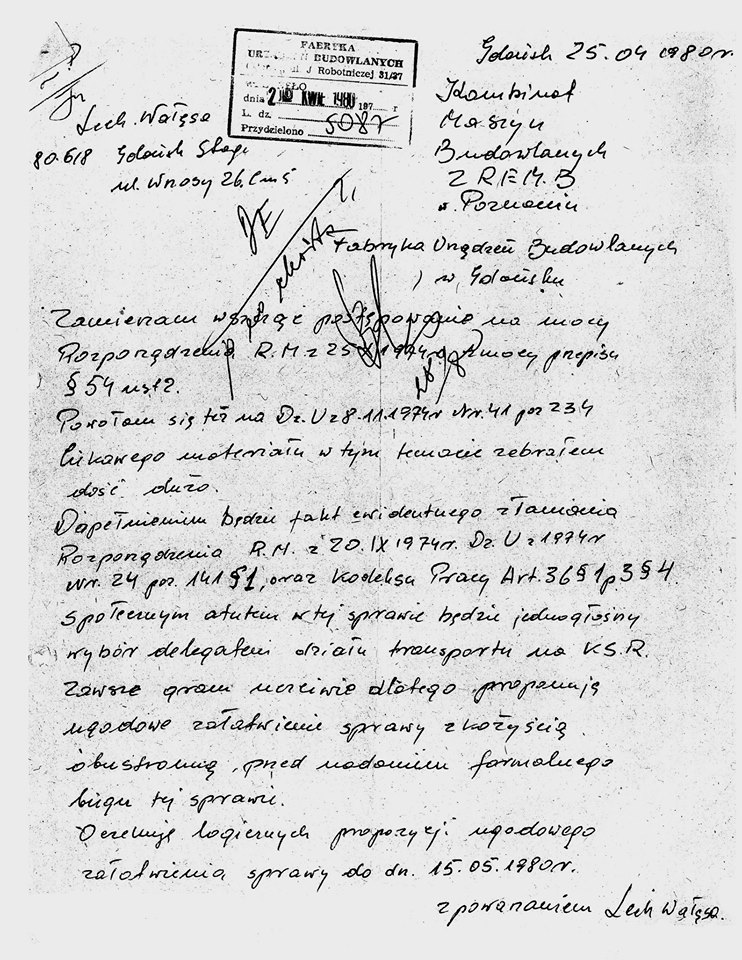 FABRYKA
URZĄDZEŃ BUDOWLANYCH
J Robotniczej 31/37
dnia 2 KWI. 1980 197 r
L. dz. 5087
Przydzielono
Gdańsk 25.04 1980r.
Lech. Wałęsa
80.618 Gdańsk Stogi
ul. Wrzosy 26.C m 5
Kombinat
Maszyn
Budowlanych
ZREMB
w. Poznaniu
Fabryka Urządzeń Budowlanych
w, Gdańsku
Zamierzam wszcząć postępowanie na mocy
Rozporządzenia R.M. z 25 1974r z mocy przepisu
§ 54 ust 2.
Powołam się też na Dz. U z 8.11.1974r Nr. 41 poz 234
Ciekawego materiału w tym temacie zebrałem
dość dużo.
Dopełnieniem będzie fakt ewidentnego złamania
Rozporządzenia R.M. z 20.IX 1974r. Dz. U z 1974r
Nr. 24 poz. 141 § 1, oraz Kodeksu Pracy Art. 36 § 1 p 3 § 4.
Społecznym atutem w tej sprawie będzie jednogłośny
wybór delegatem działu transportu na K.S.R.
Zawsze gram uczciwie dlatego proponuję
ugodowe załatwienie sprawy z kożyścią
obustronną, przed nadaniem formalnego
biegu tej sprawie.
Oczekuję logicznych propozycji ugodowego
załatwienia sprawy do dn. 15.05.1980r.
z powarzaniem Lech Wałęsa.